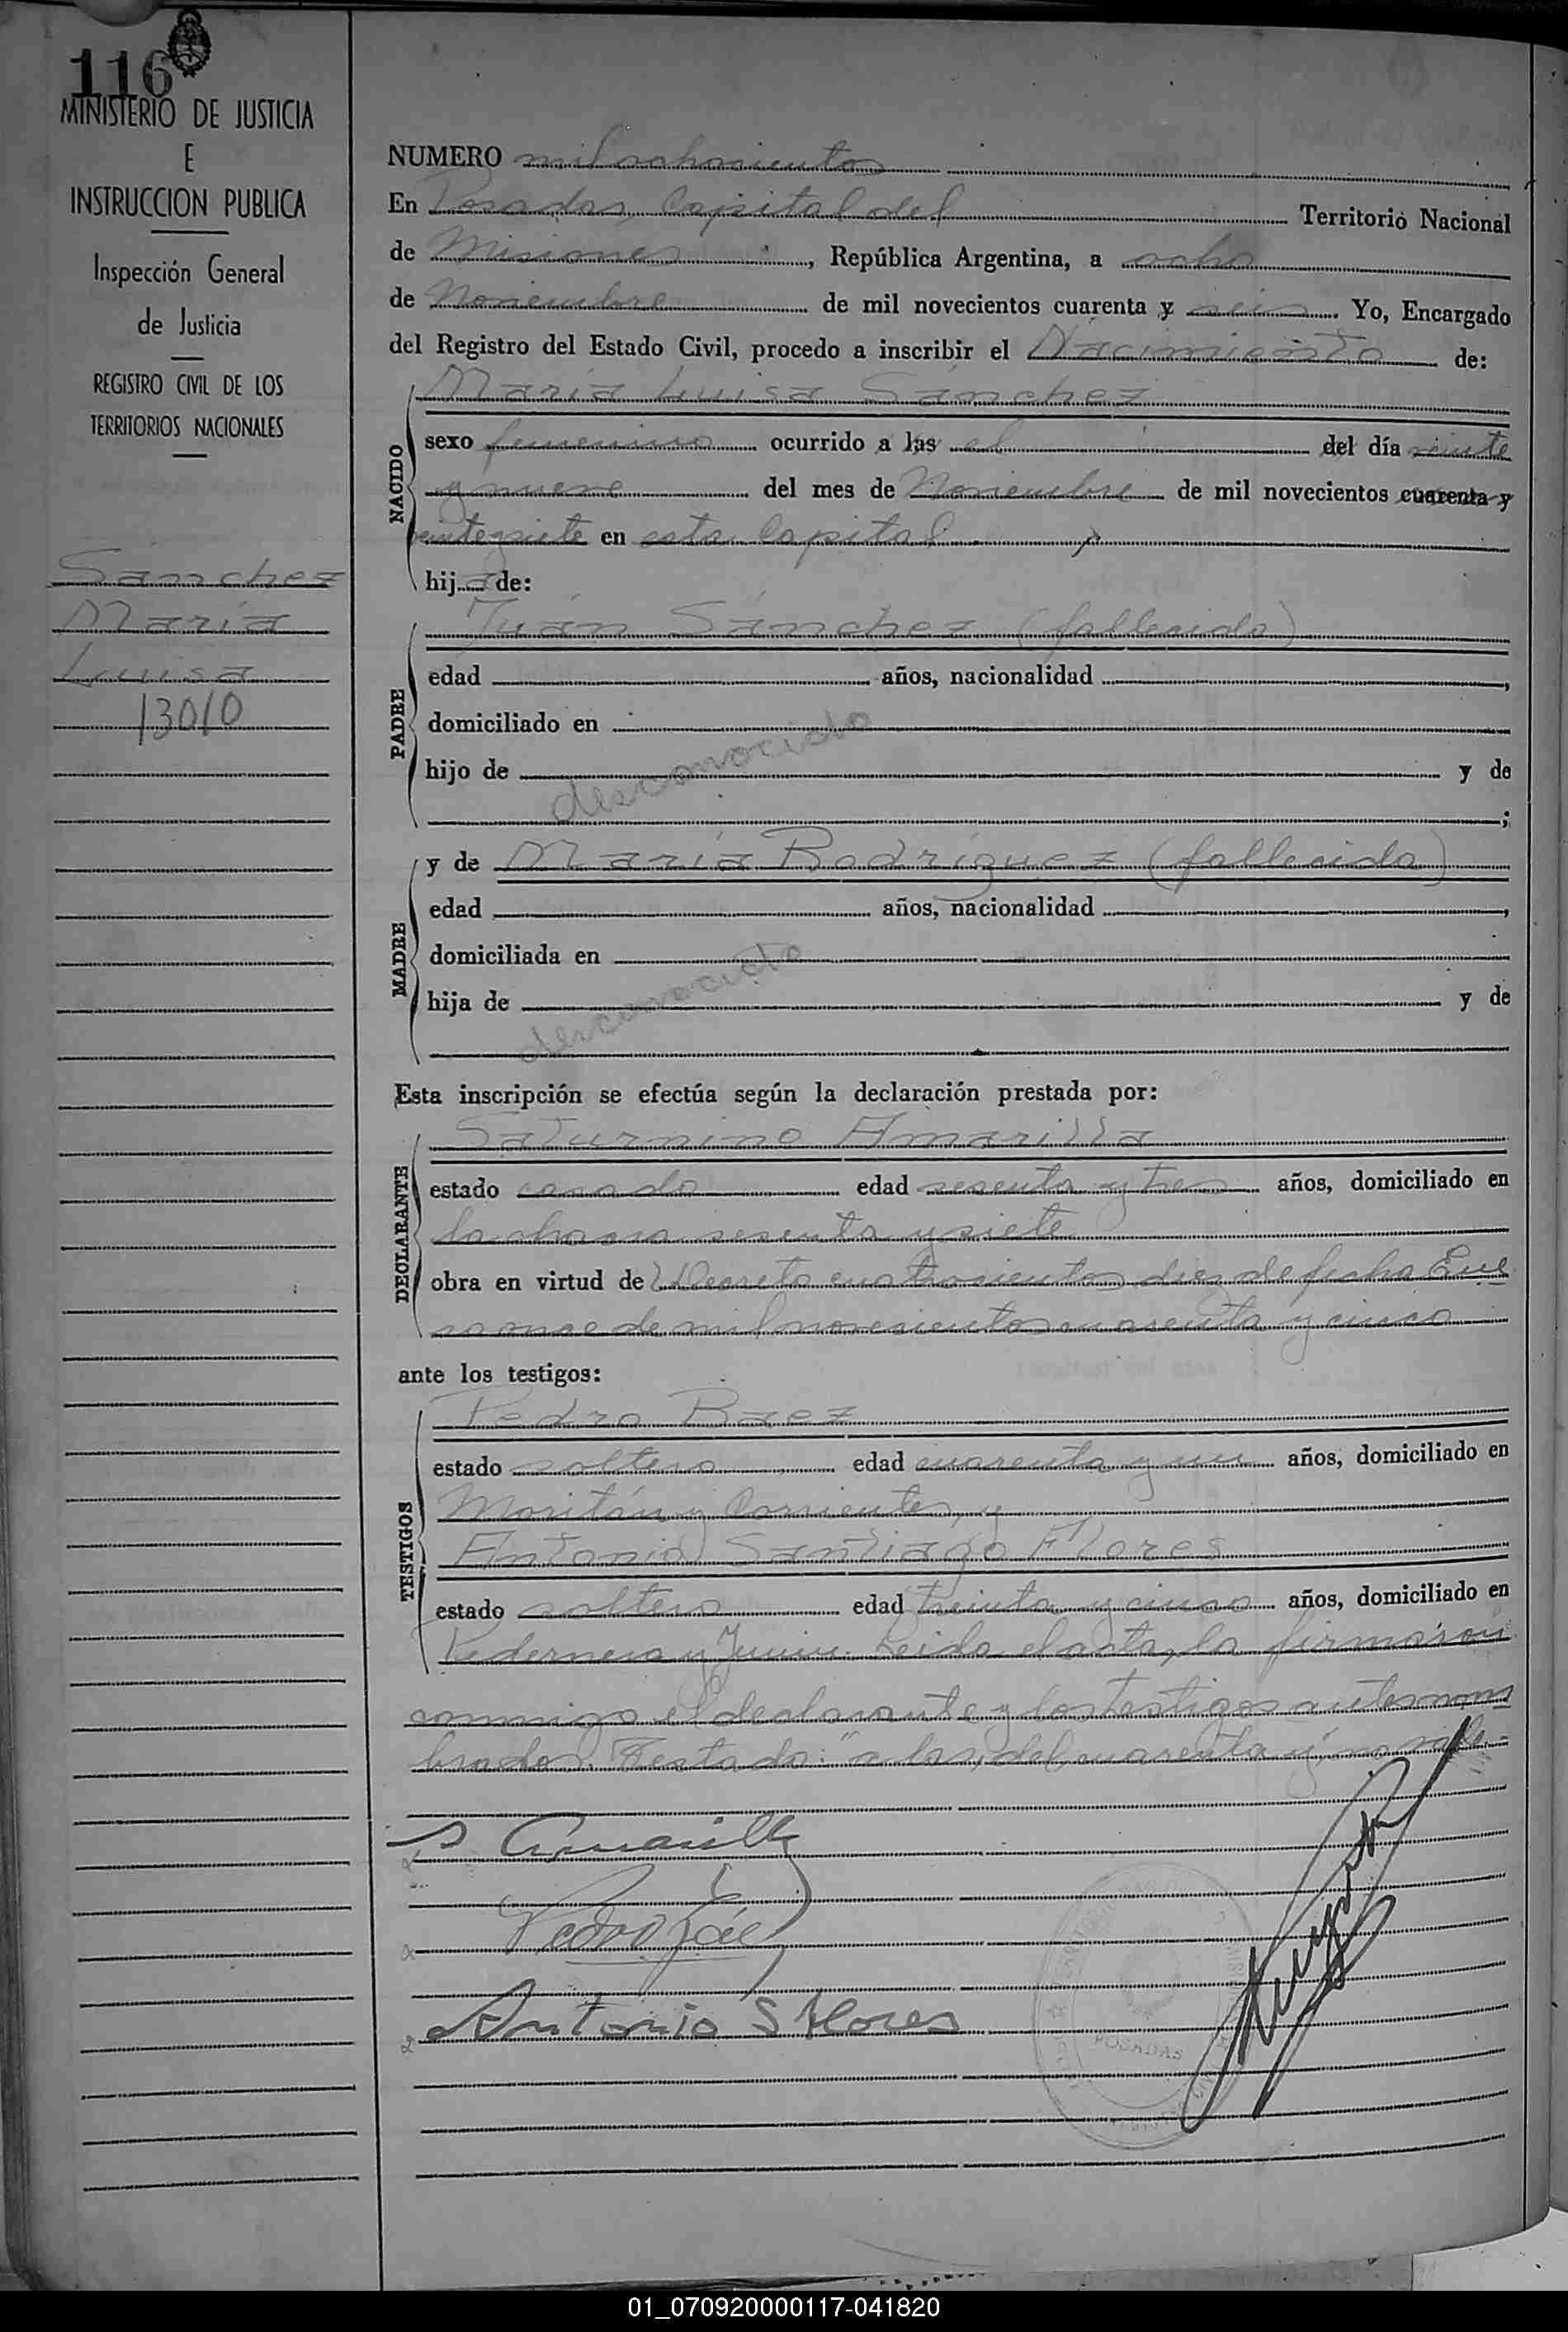 116
MINISTERIO DE JUSTICIA
E
INSTRUCCION PUBLICA
Inspección General
de Justicia
REGISTRO CIVIL DE LOS
TERRITORIOS NACIONALES
Sánchez
María
Luisa
13010
NUMERO mil ochocientos
En Posadas Capital del Territorio Nacional
de Misiones, República Argentina, a ocho
de Noviembre de mil novecientos cuarenta y seis. Yo, Encargado
del Registro del Estado Civil, procedo a inscribir el Nacimiento de:
NACIDO
María Luisa Sánchez
sexo femenino ocurrido a las el del día veinte
y nueve del mes de Noviembre de mil novecientos cuarenta y
veintesiete en esta Capital
hija de:
PADRE
Juán Sánchez (fallecido)
edad años, nacionalidad ,
domiciliado en
desconocido
hijo de y de
;
MADRE
y de María Rodríguez (fallecida)
edad años, nacionalidad ,
domiciliada en
desconocido
hija de y de
Esta inscripción se efectúa según la declaración prestada por:
DECLARANTE
Saturnino Amarilla
estado casado edad sesenta y tres años, domiciliado en
la chacra sesenta y siete
obra en virtud de Decreto cuatrocientos diez de fecha Ene
ro once de mil novecientos cuarenta y cinco
ante los testigos:
TESTIGOS
Pedro Baez
estado soltero edad cuarenta y un años, domiciliado en
y Corrientes, y
Antonio Santiago Flores
estado soltero edad treinta y cinco años, domiciliado en
Pedernera y Junin. Leida el acta, la firmaron
conmigo el declarante y los testigos antes nom
brados. Testado: "a las, del cuarenta y", no vale.-
S Amarilla
Pedro Báez
Antonio S Flores
POSADAS
01_070920000117-041820